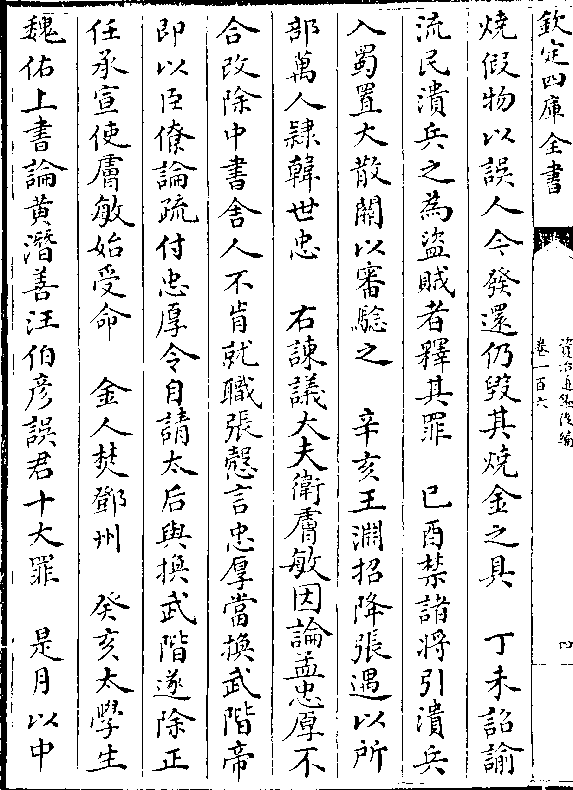 欽定四庫全書
資治通鑑後編
卷一百六
四
燒假物以誤人今發還仍毀其燒金之具　丁未詔諭
流民潰兵之為盜賊者釋其罪　己酉禁諸將引潰兵
入蜀置大散關以審驗之　辛亥王淵招降張遇以所
部萬人隸韓世忠　右諫議大夫衛膚敏因論孟忠厚不
合改除中書舍人不肯就職張慤言忠厚當換武階帝
即以臣僚論疏付忠厚令自請太后與換武階遂除正
任承宣使膚敏始受命　金人焚鄧州　癸亥太學生
魏佑上書論黄潛善汪伯彦誤君十大罪　是月以中